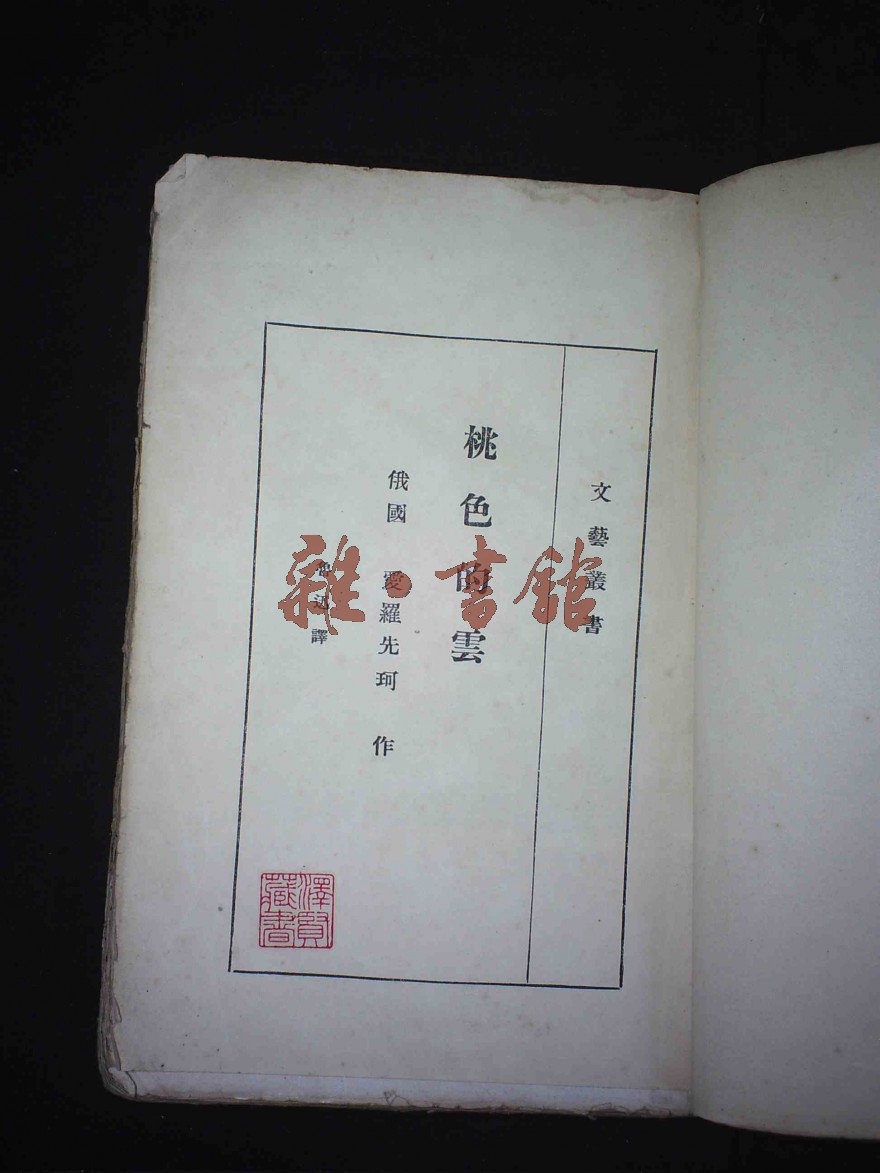 文藝叢書
桃色的雲
俄國 愛羅先珂 作
魯迅譯
澤賢
藏書
雜·書館